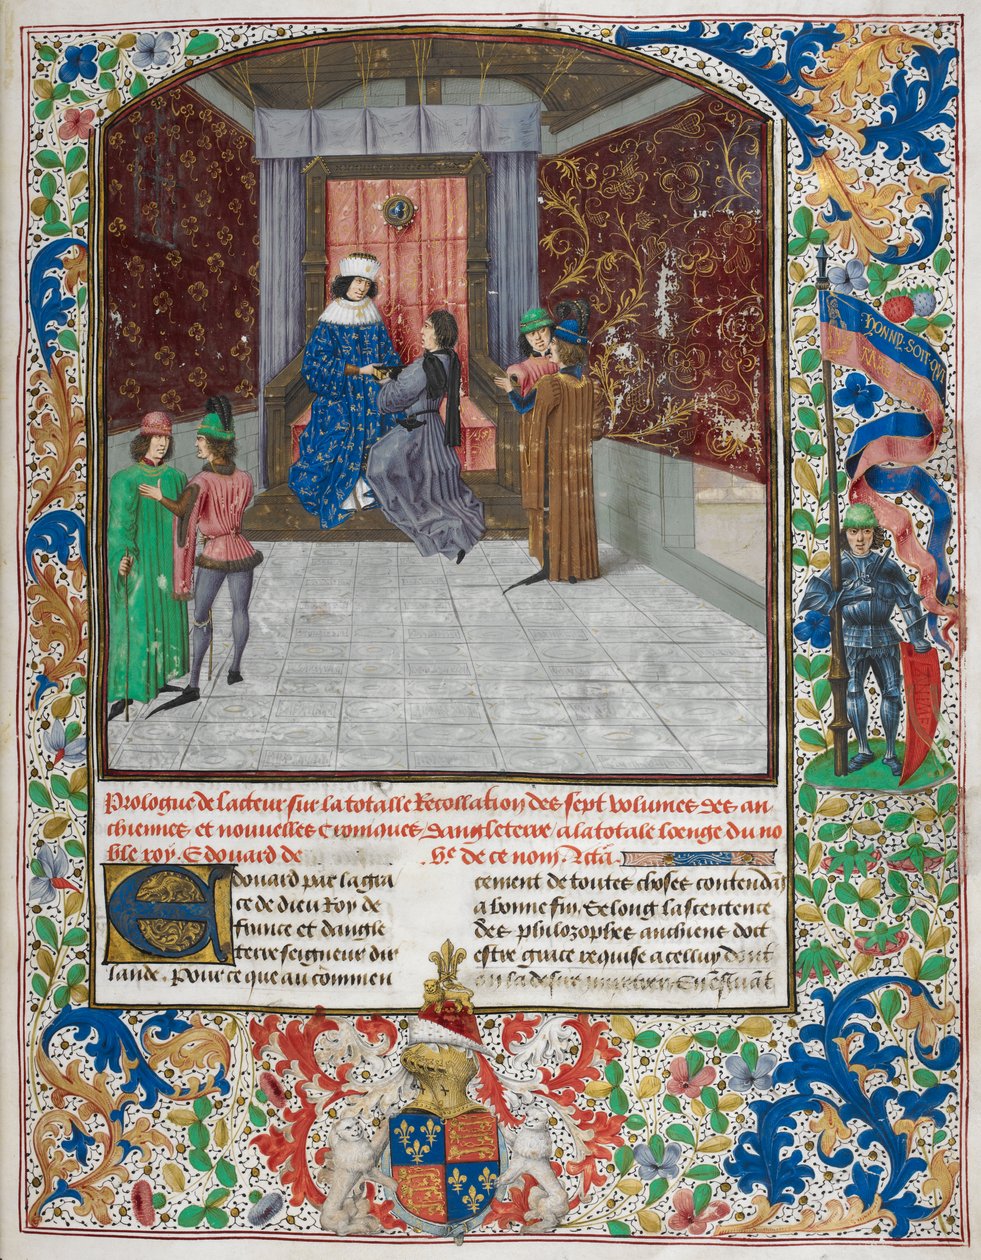 HONNY·SOIT·QVI
Prologue de lacteur sur la totalle Recollation des sept volumes des an
chiennes et nouvelles Croniques dangleterre a la totale loenge du no
ble roy. Edouard de
.he. de ce nom. Acta.
Edouard par la gra
ce de dieu Roy de
france et dangle
terre seigneur dir
lande. Pour ce que au commen
cement de toutes choses contendãs
a bonne fin. Selong la sentence
des philozophes anchiens doit
estre grace requise a celluy dont